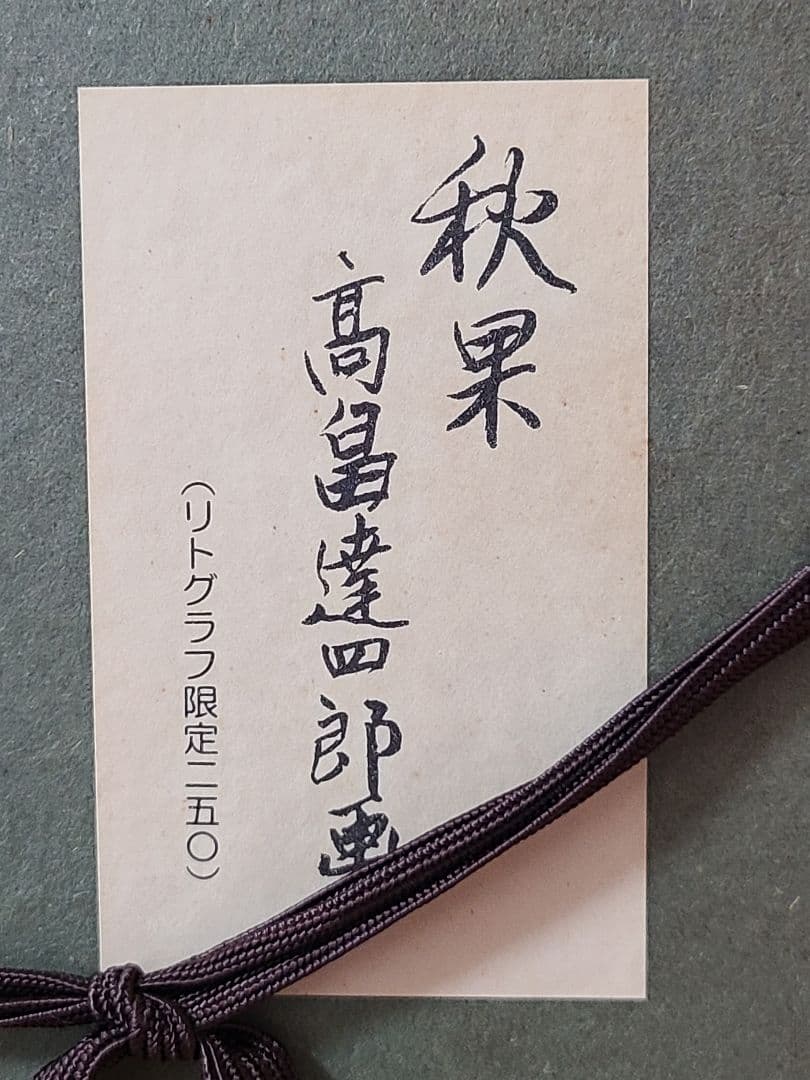 秋果
高畠達四郎画
（リトグラフ限定二五〇）